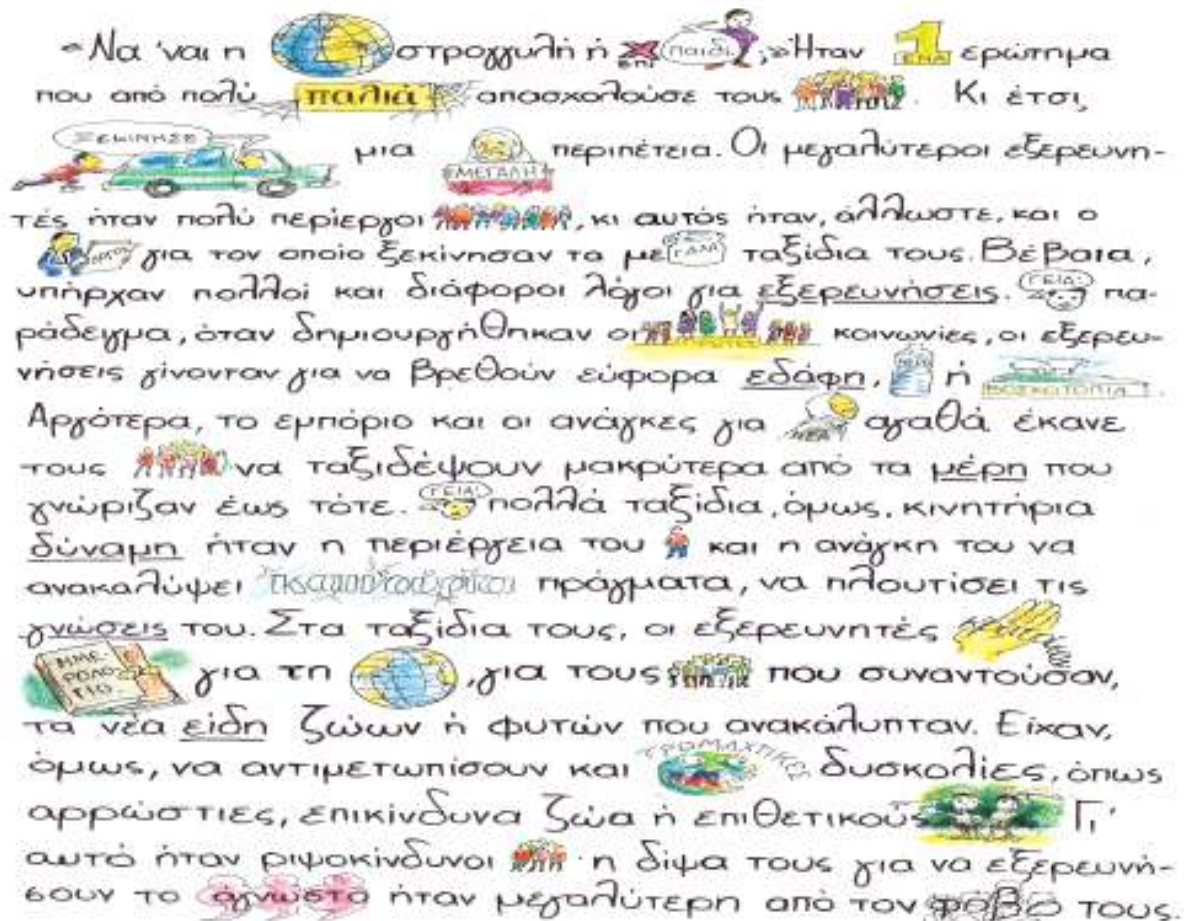 «Να 'ναι η στρογγυλή ή επί παιδι;» Ήταν 1 ΕΝΑ ερώτημα
που από πολύ παλιά απασχολούσε τους . Κι έτσι,
ΞΕΚΙΝΗΣΕ μια ΜΕΓΑΛΗ περιπέτεια. Οι μεγαλύτεροι εξερευνη-
τές ήταν πολύ περίεργοι , κι αυτός ήταν, άλλωστε, και ο
για τον οποίο ξεκίνησαν τα με ΓΑΛΑ ταξίδια τους. Βέβαια,
υπήρχαν πολλοί και διάφοροι λόγοι για εξερευνήσεις. ΓΕΙΑ! πα-
ράδειγμα, όταν δημιουργήθηκαν οι κοινωνίες, οι εξερευ-
νήσεις γίνονταν για να βρεθούν εύφορα εδάφη, ΝΕΡΟ ή ΒΟΣΚΟΤΟΠΙΑ.
Αργότερα, το εμπόριο και οι ανάγκες για αγαθά έκανε
τους να ταξιδέψουν μακρύτερα από τα μέρη που
γνώριζαν έως τότε. ΓΕΙΑ! πολλά ταξίδια, όμως, κινητήρια
δύναμη ήταν η περιέργεια του και η ανάγκη του να
ανακαλύψει πράγματα, να πλουτίσει τις
γνώσεις του. Στα ταξίδια τους, οι εξερευνητές
ΗΜΕΡΟΛΟΓΙΟ για τη , για τους που συναντούσαν,
τα νέα είδη ζώων ή φυτών που ανακάλυπταν. Είχαν,
όμως, να αντιμετωπίσουν και ΤΡΟΜΑΧΤΙΚΕΣ δυσκολίες, όπως
αρρώστιες, επικίνδυνα ζώα ή επιθετικούς Γι'
αυτό ήταν ριψοκίνδυνοι η δίψα τους για να εξερευνή-
σουν το άγνωστο ήταν μεγαλύτερη από τον φόβο τους.